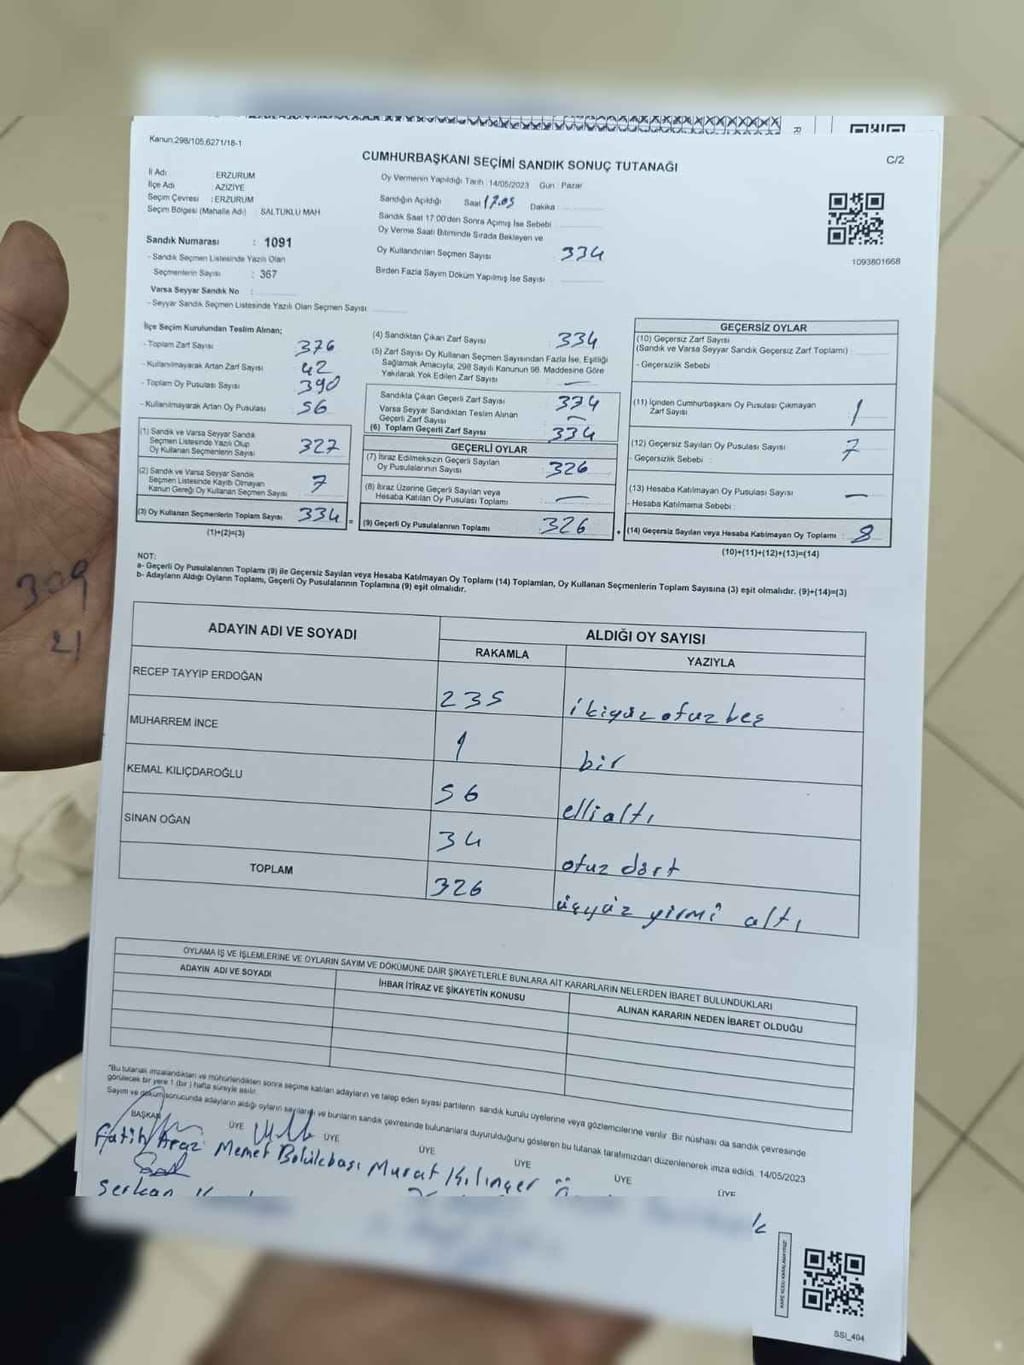 Kanun:298/105,6271/18-1
CUMHURBAŞKANI SEÇİMİ SANDIK SONUÇ TUTANAĞI
C/2
İl Adı : ERZURUM
İlçe Adı : AZİZİYE
Seçim Çevresi : ERZURUM
Seçim Bölgesi (Mahalle Adı) SALTUKLU MAH
Sandık Numarası : 1091
- Sandık Seçmen Listesinde Yazılı Olan
Seçmenlerin Sayısı : 367
Varsa Seyyar Sandık No :
- Seyyar Sandık Seçmen Listesinde Yazılı Olan Seçmen Sayısı
Oy Vermenin Yapıldığı Tarih :14/05/2023 Gün : Pazar
Sandığın Açıldığı Saat 17.05 Dakika
Sandık Saat 17:00'den Sonra Açılmış İse Sebebi
Oy Verme Saati Bitiminde Sırada Bekleyen ve
Oy Kullandırılan Seçmen Sayısı 334
Birden Fazla Sayım Döküm Yapılmış İse Sayısı
1093801668
İlçe Seçim Kurulundan Teslim Alınan;
- Toplam Zarf Sayısı 376
- Kullanılmayarak Artan Zarf Sayısı 42
- Toplam Oy Pusulası Sayısı 390
- Kullanılmayarak Artan Oy Pusulası 56
(1) Sandık ve Varsa Seyyar Sandık
Seçmen Listesinde Yazılı Olup
Oy Kullanan Seçmenlerin Sayısı 327
(2) Sandık ve Varsa Seyyar Sandık
Seçmen Listesinde Kayıtlı Olmayan
Kanun Gereği Oy Kullanan Seçmen Sayısı 7
(3) Oy Kullanan Seçmenlerin Toplam Sayısı 334 =
(1)+(2)=(3)
(4) Sandıktan Çıkan Zarf Sayısı 334
(5) Zarf Sayısı Oy Kullanan Seçmen Sayısından Fazla İse, Eşitliği
Sağlamak Amacıyla, 298 Sayılı Kanunun 98. Maddesine Göre
Yakılarak Yok Edilen Zarf Sayısı —
Sandıkta Çıkan Geçerli Zarf Sayısı 334
Varsa Seyyar Sandıktan Teslim Alınan
Geçerli Zarf Sayısı —
(6) Toplam Geçerli Zarf Sayısı 334
GEÇERLİ OYLAR
(7) İtiraz Edilmeksizin Geçerli Sayılan
Oy Pusulalarının Sayısı 326
(8) İtiraz Üzerine Geçerli Sayılan veya
Hesaba Katılan Oy Pusulası Toplamı —
(9) Geçerli Oy Pusulalarının Toplamı 326 +
GEÇERSİZ OYLAR
(10) Geçersiz Zarf Sayısı
(Sandık ve Varsa Seyyar Sandık Geçersiz Zarf Toplamı)
- Geçersizlik Sebebi :
(11) İçinden Cumhurbaşkanı Oy Pusulası Çıkmayan
Zarf Sayısı 1
(12) Geçersiz Sayılan Oy Pusulası Sayısı 7
- Geçersizlik Sebebi :
(13) Hesaba Katılmayan Oy Pusulası Sayısı —
- Hesaba Katılmama Sebebi :
(14) Geçersiz Sayılan veya Hesaba Katılmayan Oy Toplamı : 8
(10)+(11)+(12)+(13)=(14)
NOT:
a- Geçerli Oy Pusulalarının Toplamı (9) ile Geçersiz Sayılan veya Hesaba Katılmayan Oy Toplamı (14) Toplamları, Oy Kullanan Seçmenlerin Toplam Sayısına (3) eşit olmalıdır. (9)+(14)=(3)
b- Adayların Aldığı Oyların Toplamı, Geçerli Oy Pusulalarının Toplamına (9) eşit olmalıdır.
309
21
ADAYIN ADI VE SOYADI ALDIĞI OY SAYISI
RAKAMLA YAZIYLA
RECEP TAYYİP ERDOĞAN 235 ikiyüzotuzbeş
MUHARREM İNCE 1 bir
KEMAL KILIÇDAROĞLU 56 ellialtı
SİNAN OĞAN 34 otuz dört
TOPLAM 326 üçyüz yirmi altı
OYLAMA İŞ VE İŞLEMLERİNE VE OYLARIN SAYIM VE DÖKÜMÜNE DAİR ŞİKAYETLERLE BUNLARA AİT KARARLARIN NELERDEN İBARET BULUNDUKLARI
ADAYIN ADI VE SOYADI İHBAR İTİRAZ VE ŞİKAYETİN KONUSU ALINAN KARARIN NEDEN İBARET OLDUĞU
"Bu tutanak imzalandıktan ve mühürlendikten sonra seçime katılan adayların ve talep eden siyasi partilerin sandık kurulu üyelerine veya gözlemcilerine verilir. Bir nüshası da sandık çevresinde
görülecek bir yere 1 (bir ) hafta süreyle asılır.
Sayım ve döküm sonucunda adayların aldığı oyların sayılarını ve bunların sandık çevresinde bulunanlara duyurulduğunu gösteren bu tutanak tarafımızdan düzenlenerek imza edildi. 14/05/2023
BAŞKAN ÜYE ÜYE ÜYE ÜYE ÜYE ÜYE
Fatih Araz Memet Bölükbaşı Murat Kılınçer
Serkan
SSI_404